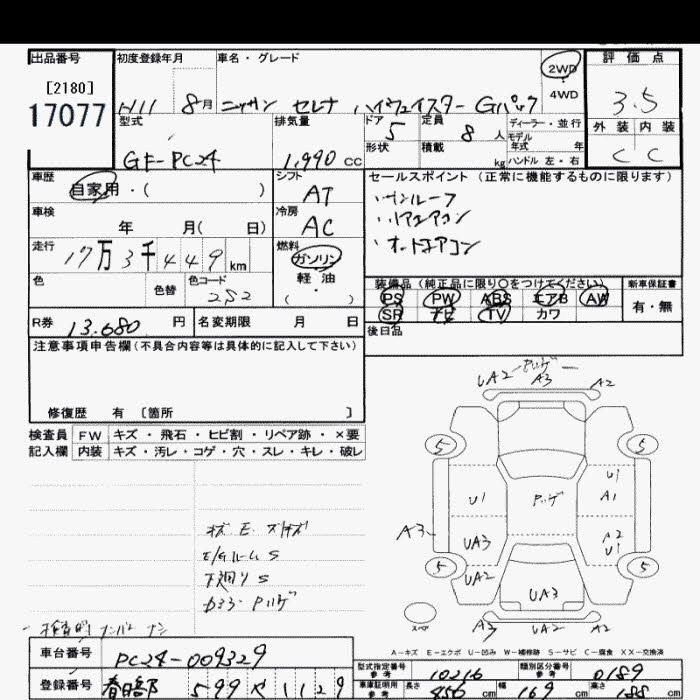 出品番号 初度登録年月 車名・グレード 2WD 評価点
[2180] ・4WD
17077 H11 8月 ニッサン セレナ ハイウェイスター Gパック 3.5
型式 排気量 ドア 5 定員 8人 ディーラー・並行 外装 内装
GF-PC24 1,990 cc 形状 積載 kg モデル年式 年 C C
ハンドル 左・右
車歴 シフト セールスポイント (正常に機能するものに限ります)
自家用・( ) AT ・サンルーフ
車検 冷房 ・リアエアコン
年 月( 日) AC ・オートエアコン
走行 燃料
17万3千449km ガソリン
色 色替 色コード 軽・油 装備品 (純正品に限り○をつけてください) 新車保証書
2S2 ( ) PS PW ABS エアB AW 有・無
R券 13.680 円 名変期限 月 日 SR ナビ TV カワ
後日品
注意事項申告欄(不具合内容等は具体的に記入して下さい)
修復歴 有 [箇所 ]
UA2 A3 A2
検査員 FW キズ・飛石・ヒビ割・リペア跡・×要
記入欄 内装 キズ・汚レ・コゲ・穴・スレ・キレ・破レ
5 5
U1 U1
A1
A3 UA3 A2
U1
E/Gルーム S
下廻り S
5 UA2 UA3 5
スペア A3 UA2 A2
A-キズ E-エクボ U-凹み W-補修跡 S-サビ C-腐食 XX-交換済
車台番号 PC24-009329
型式指定番号 参考 10216 類別区分番号 参考 0189
登録番号 春日部 599 や 1129
車庫証明用 参考 長さ 456 cm 幅 169 cm 高さ 188 cm